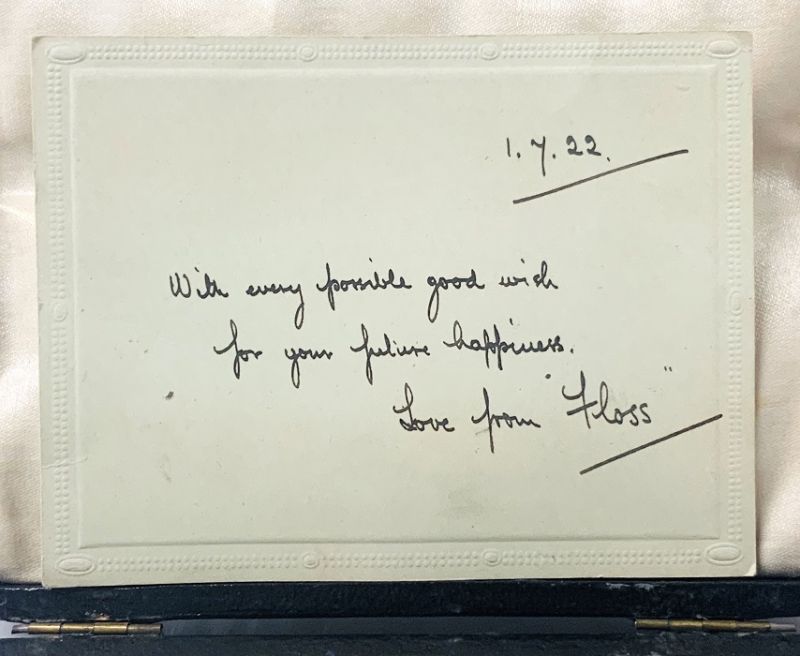 1.7.22.
With every possible good wish
for your future happiness.
Love from "Floss"